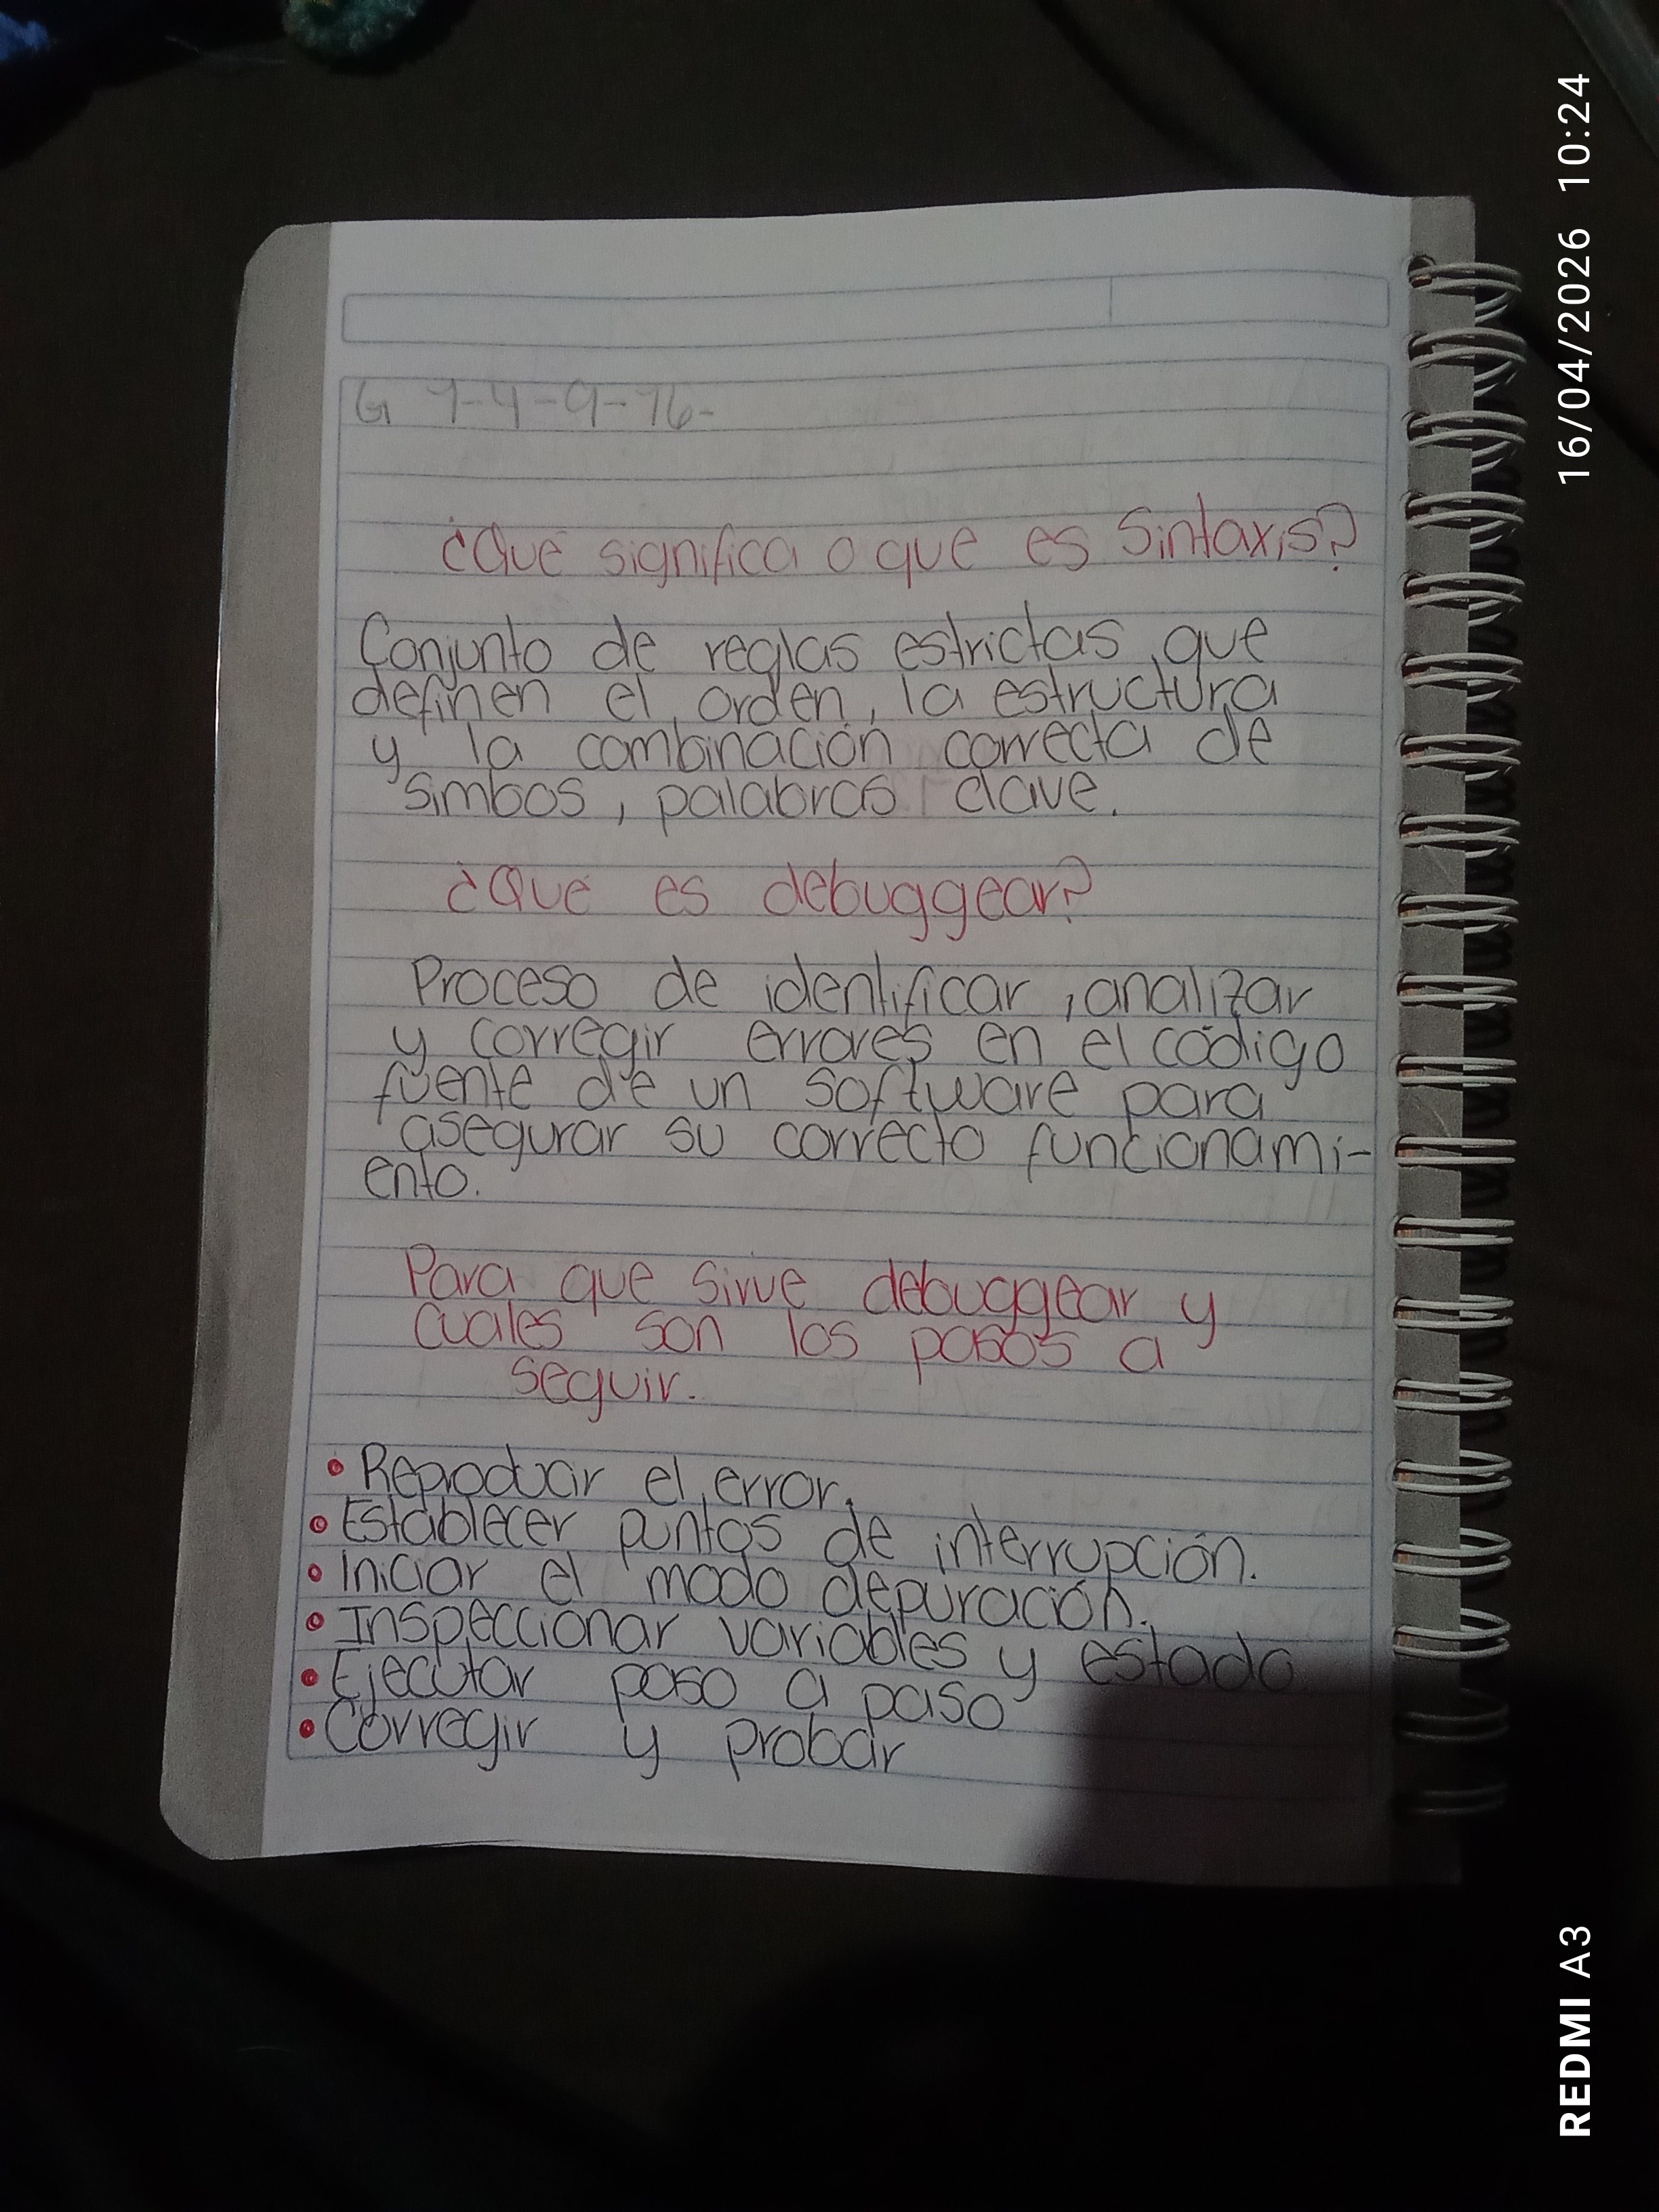 G 7-4-9-76-
¿Qué significa o que es Sintaxis?
Conjunto de reglas estrictas que
definen el orden, la estructura
y la combinación correcta de
simbos, palabras clave.
¿Qué es debuggear?
Proceso de identificar, analizar
y corregir errores en el código
fuente de un software para
asegurar su correcto funcionami-
ento.
Para que sirve debuggear y
cuales son los pasos a
seguir.
• Reproducir el error.
• Establecer puntos de interrupción.
• Iniciar el modo depuración.
• Inspeccionar variables y estado.
• Ejecutar paso a paso
• Corregir y probar
16/04/2026 10:24
REDMI A3